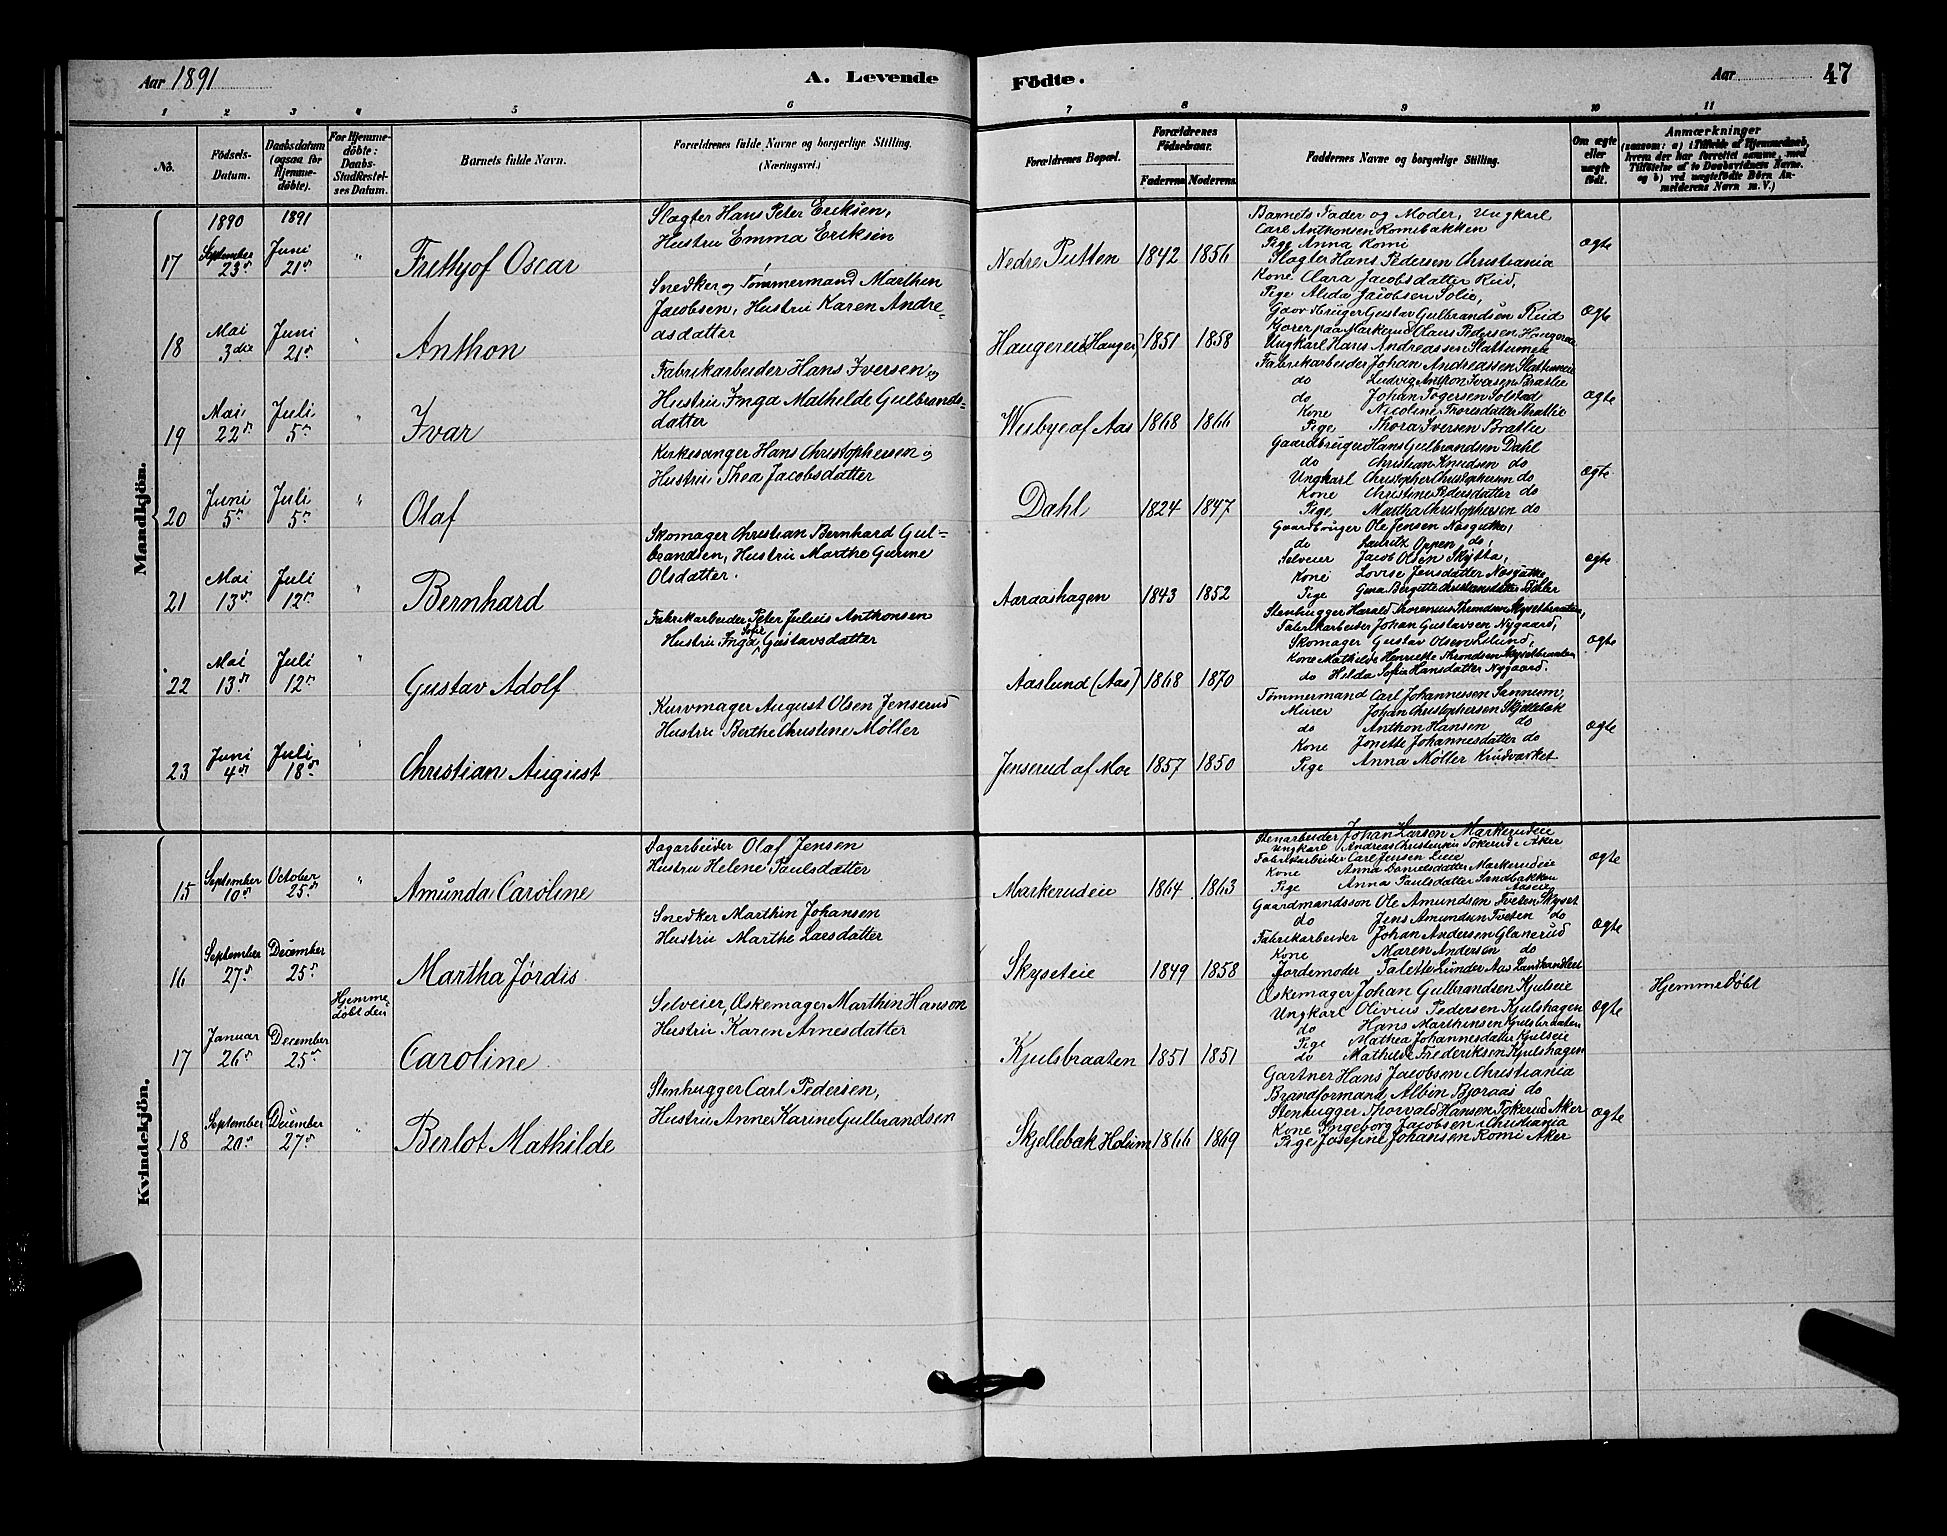 Aar 1891
A. Levende
Fødte.
Aar
47
1 2 3 4 5 6 7 8 9 10 11
No.
Fødsels-Datum.
Daabsdatum (ogsaa for Hjemmedöbte).
For Hjemmedöbte: Daabs-Stadfæstelses Datum.
Barnets fulde Navn.
Forældrenes fulde Navne og borgerlige Stilling.
(Næringsvei.)
Forældrenes Bopæl.
Forældrenes Födselsaar.
Faderens Moderens
Faddernes Navne og borgerlige Stilling.
Om ægte eller uægte født.
Anmærkninger
(saasom: a) i Tilfælde af Hjemmedaab, hvem der har forrettet samme, med Tilföielse af to Daabsvidners Navne. og b) ved uægtefödte Börn Anmelderens Navn m. V.)
Mandkjön.
1890 1891
17 September 23de Juni 21de " Frithjof Oscar
Slagter Hans Peter Eriksen,
Hustru Emma Eriksen
Nedre Putten 1842 1856
Barnets Fader og Moder, Ungkarl
Carl Anthonsen Romibakken
Pige Anna Romi
Slagter Hans Pedersen Christiania
ægte
18 Mai 3die Juni 21de " Anthon
Snedker og Tømmermand Marthin
Jacobsen, Hustru Karen Andre-
asdatter
Haugereie (Hauger) 1851 1858
Kone Clara Jacobsdatter Rud,
Pige Alida Jacobsen Solie,
Gaardbruger Gustav Gulbrandsen Rud
Kjører paa Markerud Claus Pedersen
Ungkarl Hans Andreassen Slattumeie
ægte
19 Mai 22de Juli 5te " Ivar
Fabrikarbeider Hans Iversen og
Hustru Inga Mathilde Gulbrands-
datter
Wesbye af Aas 1868 1866
Fabrikarbeider Johan Andreassen Slattumeie
do Ludvig Anthon Iversen Bratlie
do Johan Togersen Solstad
Kone Nicoline Thoresdatter Bratlie
Pige Thora Iversen Bratlie
ægte
20 Juni 5te Juli 5te " Olaf
Kirkesanger Hans Christophersen og
Hustru Thea Jacobsdatter
Dahl 1824 1847
Gaardbruger Hans Gulbrandsen Dahl
do Christian Knudsen do
Ungkarl Christopher Christophersen do
Kone Christine Pedersdatter do
Pige Martha Christophersen do
ægte
21 Mai 13de Juli 12te " Bernhard
Skomager Christian Bernhard Gul-
brandsen, Hustru Marthe Gurine
Olsdatter.
Aaraashagen 1843 1852
Gaardbruger Ole Jensen Nosgutha,
do Lauritz Oppen do,
Selveier Jacob Olsen Skytta,
Kone Lovise Jensdatter Nosgutha
Pige Gina Birgitte Christiansdatter Böhler
ægte
22 Mai 13de Juli 12te " Gustav Adolf
Fabrikarbeider Peter Julius Anthonsen
Hustru Inga Sofie Gustavsdatter
Aaslund (Aas) 1868 1870
Stenhugger Harald Thorenius Throndsen Skysetbraaten,
Fabrikarbeider Johan Gustavsen Nygaard,
Skomager Gustav Olsen Lilund,
Kone Mathilde Henriette Throndsen Skysetbraaten
do Hilda Sofia Hansdatter Nygaard.
ægte
23 Juni 4de Juli 18de " Christian August
Kurvmager August Olsen Jenserud
Hustru Berthe Christine Møller
Jenserud af Moe 1857 1850
Tømmermand Carl Johannesen Sannum,
Murer Johan Christophersen Skjellebek
do Anthon Hansen do
Kone Jonette Johannesdatter do
Pige Anna Møller Krudværket
ægte
Kvindekjön.
15 September 10de October 25de " Amunda Caroline
Dagarbeider Olaf Jensen
Hustru Helene Paulsdatter
Markerudeie 1864 1863
Stenarbeider Johan Larsen Markerudeie
Ungkarl Andreas Christensen Tokerud i Aker
Fabrikarbeider Carl Jensen Lieie
Kone Anna Danielsdatter Markerudeie
Pige Anna Paulsdatter Sandbakken Aaseie
ægte
16 September 27de December 25de Martha Jørdis
Snedker Marthin Johansen
Hustru Marthe Larsdatter
Skyseteie 1849 1858
Gaardmandssøn Ole Amundsen Tveten Skyset
do Jens Amundsen Tveten do
Fabrikarbeider Johan Andersen Glanerud
Kone Maren Andersen do
Jordemoder Talette Lunder Aas Landhandleri
ægte
17 Januar 26de December 25de Hjemmedøbt den Caroline
Selveier, Æskemager Marthin Hansen
Hustru Karen Arnesdatter
Kjulsbraaten 1851 1851
Æskemager Johan Gulbrandsen Kjulseie
Ungkarl Olivius Pedersen Kjulshagen
do Hans Marthinsen Kjulsbraaten
Pige Mathea Johannesdatter Kjulseie
do Mathilde Frederiksen Kjulshagen
ægte
Hjemmedøbt
18 September 20de December 27de " Berlot Mathilde
Stenhugger Carl Pedersen,
Hustru Anne Karine Gulbrandsen
Skjellebæk Holum 1866 1869
Gartner Hans Jacobsen Christiania
Brandformand Albin Bjoraas do
Stenhugger Thorvald Hansen Tokerud Aker
Kone Ingeborg Jacobsen Christiania
Pige Josefine Johansen Romi Aker
ægte